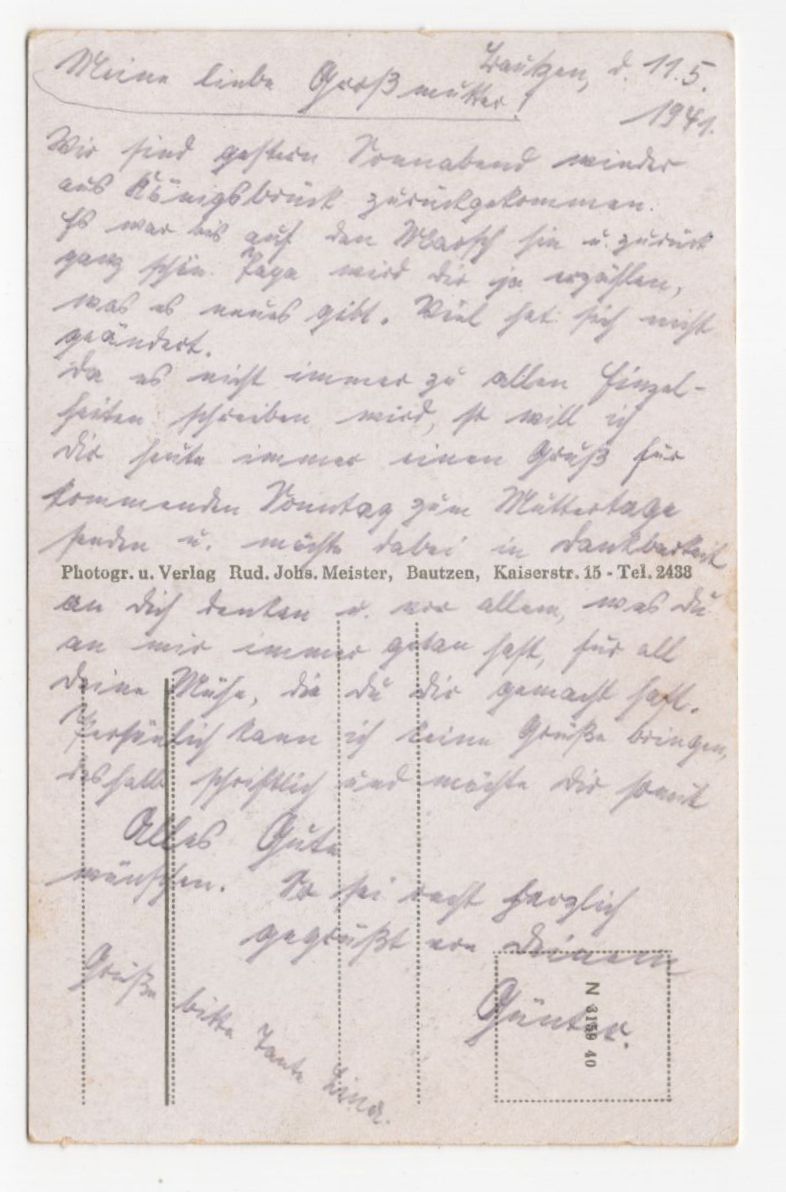 Bautzen, d. 11.5.
1941.
Meine liebe Großmutter!
Wir sind gestern Sonnabend wieder
aus Königsbrück zurückgekommen.
Es war bis auf den Marsch hin u. zurück
ganz schön. Papa wird dir ja erzählen,
was es neues gibt. Viel hat sich nicht
geändert.
Da es nicht immer zu allen Einzel-
heiten schreiben wird, so will ich
dir heute immer einen Gruß für
kommenden Sonntag zum Muttertage
senden u. möchte dabei in Dankbarkeit
Photogr. u. Verlag Rud. Johs. Meister, Bautzen, Kaiserstr. 15 - Tel. 2433
an dich denken u. vor allem, was du
an mir immer getan hast, für all
deine Mühe, die du dir gemacht hast.
Persönlich kann ich keine Grüße bringen,
deshalb schriftlich und möchte dir somit
Alles Gute
wünschen. So sei recht herzlich
gegrüßt von Deinem
Günter.
Grüße bitte Tante
N 3159 40